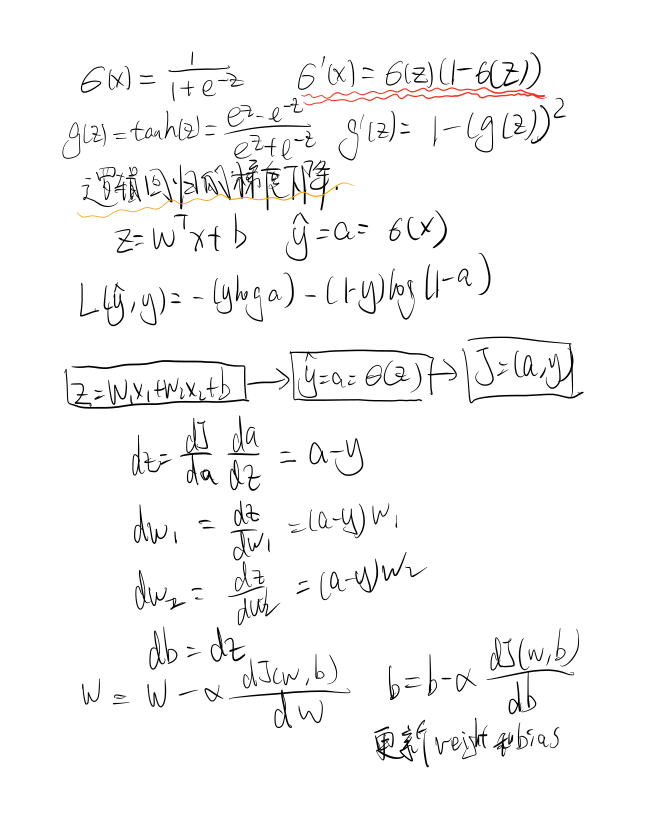 σ(x) = 1/(1+e^-z)   σ'(x) = σ(z)(1-σ(z))
g(z) = tanh(z) = (e^z - e^-z)/(e^z + e^-z)   g'(z) = 1-(g(z))^2
逻辑回归的梯度下降.
z = w^T x + b   ŷ = a = σ(x)
L(ŷ, y) = -(y log a) - (1-y) log (1-a)
z = w₁x₁+w₂x₂+b → ŷ = a = σ(z) → J = (a, y)
dz = dJ/da da/dz = a-y
dw₁ = dz/dw₁ = (a-y)w₁
dw₂ = dz/dw₂ = (a-y)w₂
db = dz
w = w - α dJ(w,b)/dw   b = b - α dJ(w,b)/db
更新 weight 和 bias